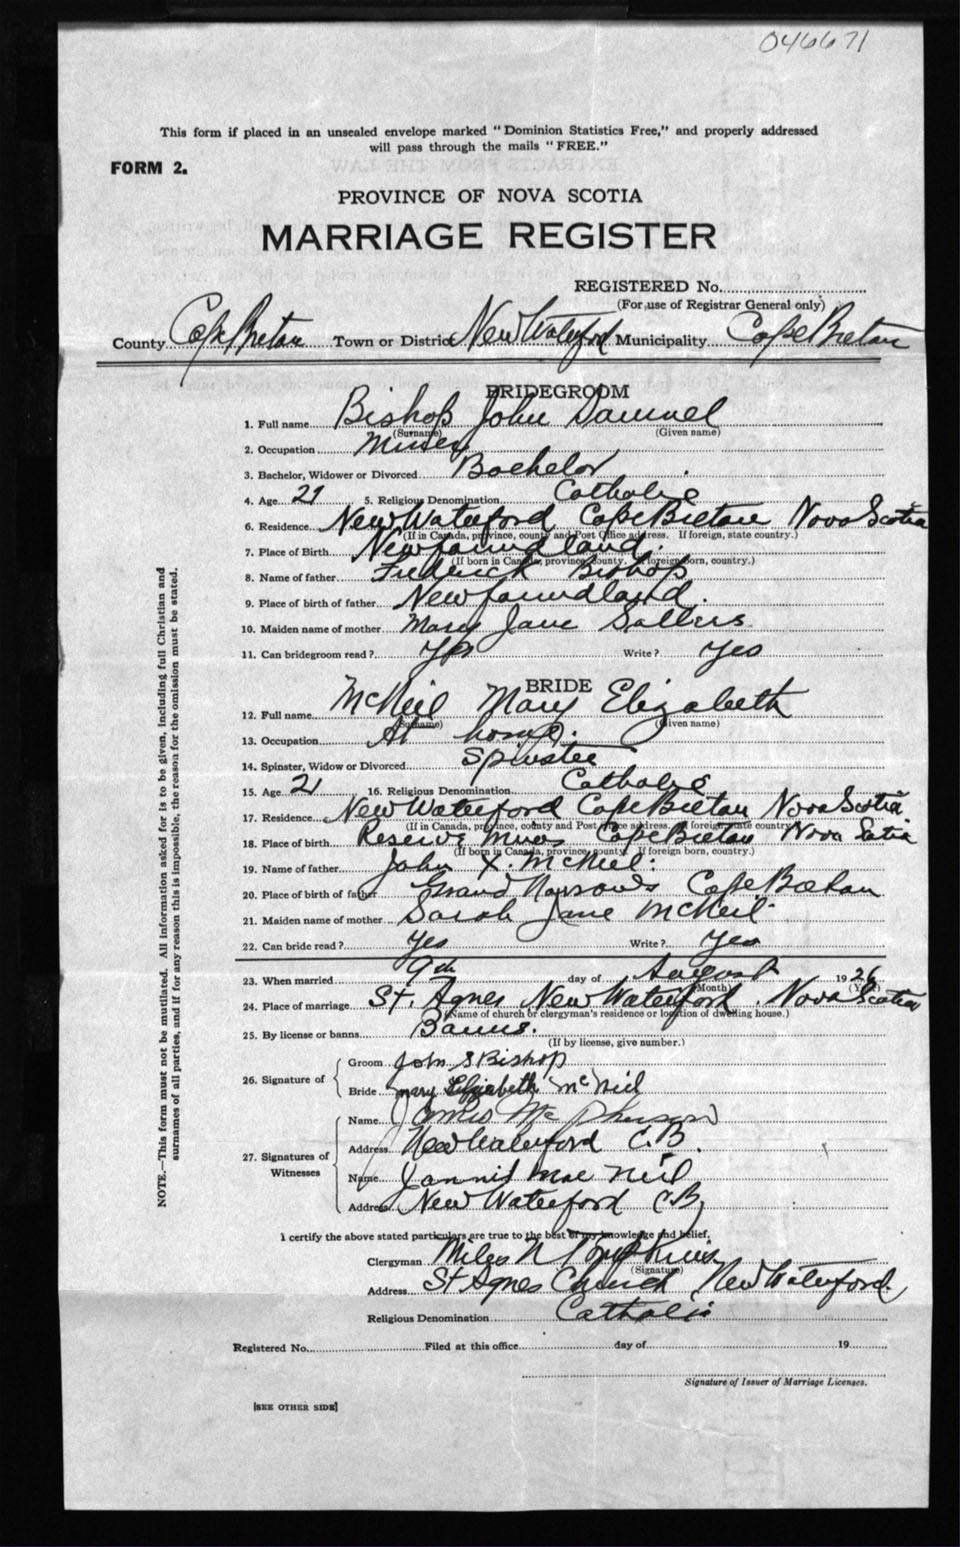 046671
This form if placed in an unsealed envelope marked "Dominion Statistics Free," and properly addressed
will pass through the mails "FREE."
FORM 2.
PROVINCE OF NOVA SCOTIA
MARRIAGE REGISTER
REGISTERED No.
(For use of Registrar General only)
County Cape Breton Town or District New Waterford Municipality Cape Breton
BRIDEGROOM
1. Full name Bishop John Samuel
(Surname) (Given name)
2. Occupation Miner
3. Bachelor, Widower or Divorced Bachelor
4. Age 21 5. Religious Denomination Catholic
6. Residence New Waterford Cape Breton Nova Scotia
(If in Canada, province, county and Post Office address. If foreign, state country.)
7. Place of Birth Newfoundland.
(If born in Canada, province, county. If foreign born, country.)
8. Name of father Frederick Bishop
9. Place of birth of father Newfoundland.
10. Maiden name of mother Mary Jane Sellers
11. Can bridegroom read? Yes Write? Yes
BRIDE
12. Full name McNeil Mary Elizabeth
(Surname) (Given name)
13. Occupation At home.
14. Spinster, Widow or Divorced Spinster
15. Age 21 16. Religious Denomination Catholic
17. Residence New Waterford Cape Breton Nova Scotia.
(If in Canada, province, county and Post Office address. If foreign state country)
18. Place of birth Reserve Mines Cape Breton Nova Scotia
(If born in Canada, province, county. If foreign born, country.)
19. Name of father John X. McNeil.
20. Place of birth of father Grand Narrows Cape Breton
21. Maiden name of mother Sarah Jane McNeil
22. Can bride read? Yes Write? Yes
23. When married 9th day of August 1926
(Month) (Year)
24. Place of marriage St. Agnes New Waterford. Nova Scotia
(Name of church or clergyman's residence or location of dwelling house.)
25. By license or banns Banns.
(If by license, give number.)
26. Signature of
Groom John S Bishop
Bride Mary Elizabeth McNeil
27. Signatures of Witnesses
Name James McPherson
Address New Waterford C.B.
Name Mac Neil
Address New Waterford C.B,
I certify the above stated particulars are true to the best of my knowledge and belief.
Clergyman Miles N Tompkins
(Signature)
Address St Agnes Church New Waterford.
Religious Denomination Catholic
Registered No. Filed at this office day of 19
Signature of Issuer of Marriage Licenses.
[SEE OTHER SIDE]
NOTE.—This form must not be mutilated. All information asked for is to be given, including full Christian and
surnames of all parties, and if for any reason this is impossible, the reason for the omission must be stated.